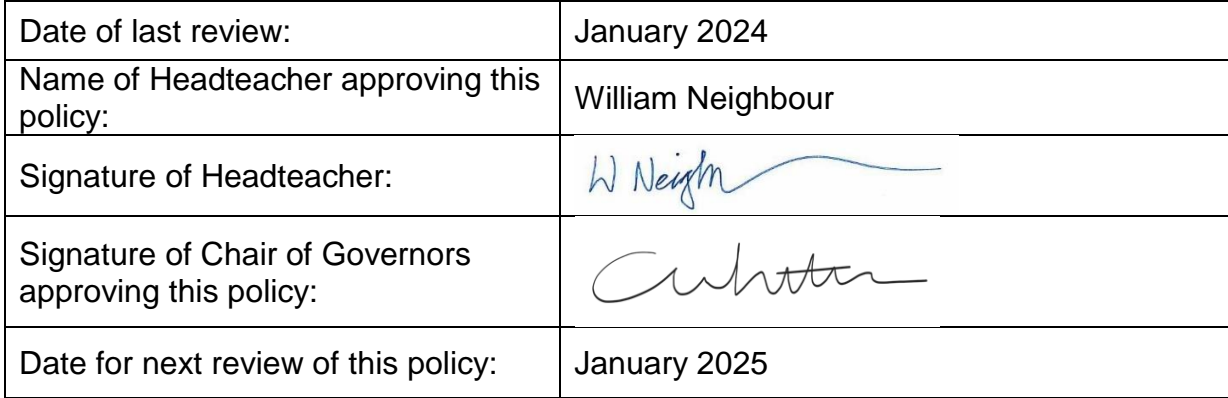 Date of last review: January 2024
Name of Headteacher approving this
policy: William Neighbour
Signature of Headteacher: W Neigh
Signature of Chair of Governors
approving this policy:
Date for next review of this policy: January 2025